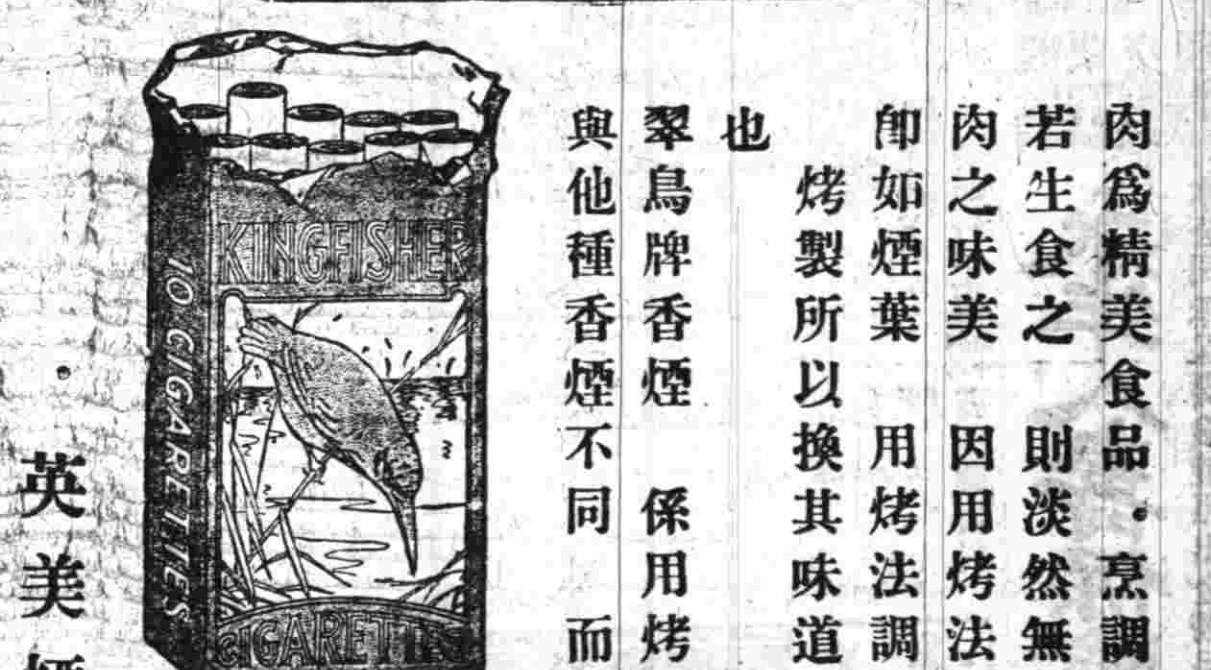 肉爲精美食品。烹調
若生食之 則淡然無
肉之味美 因用烤法
卽如煙葉 用烤法調
烤製所以換其味道
也
翠鳥牌香煙 係用烤
與他種香煙不同 而
KINGFISHER
10 CIGARETTES
CIGARETTES
英美煙